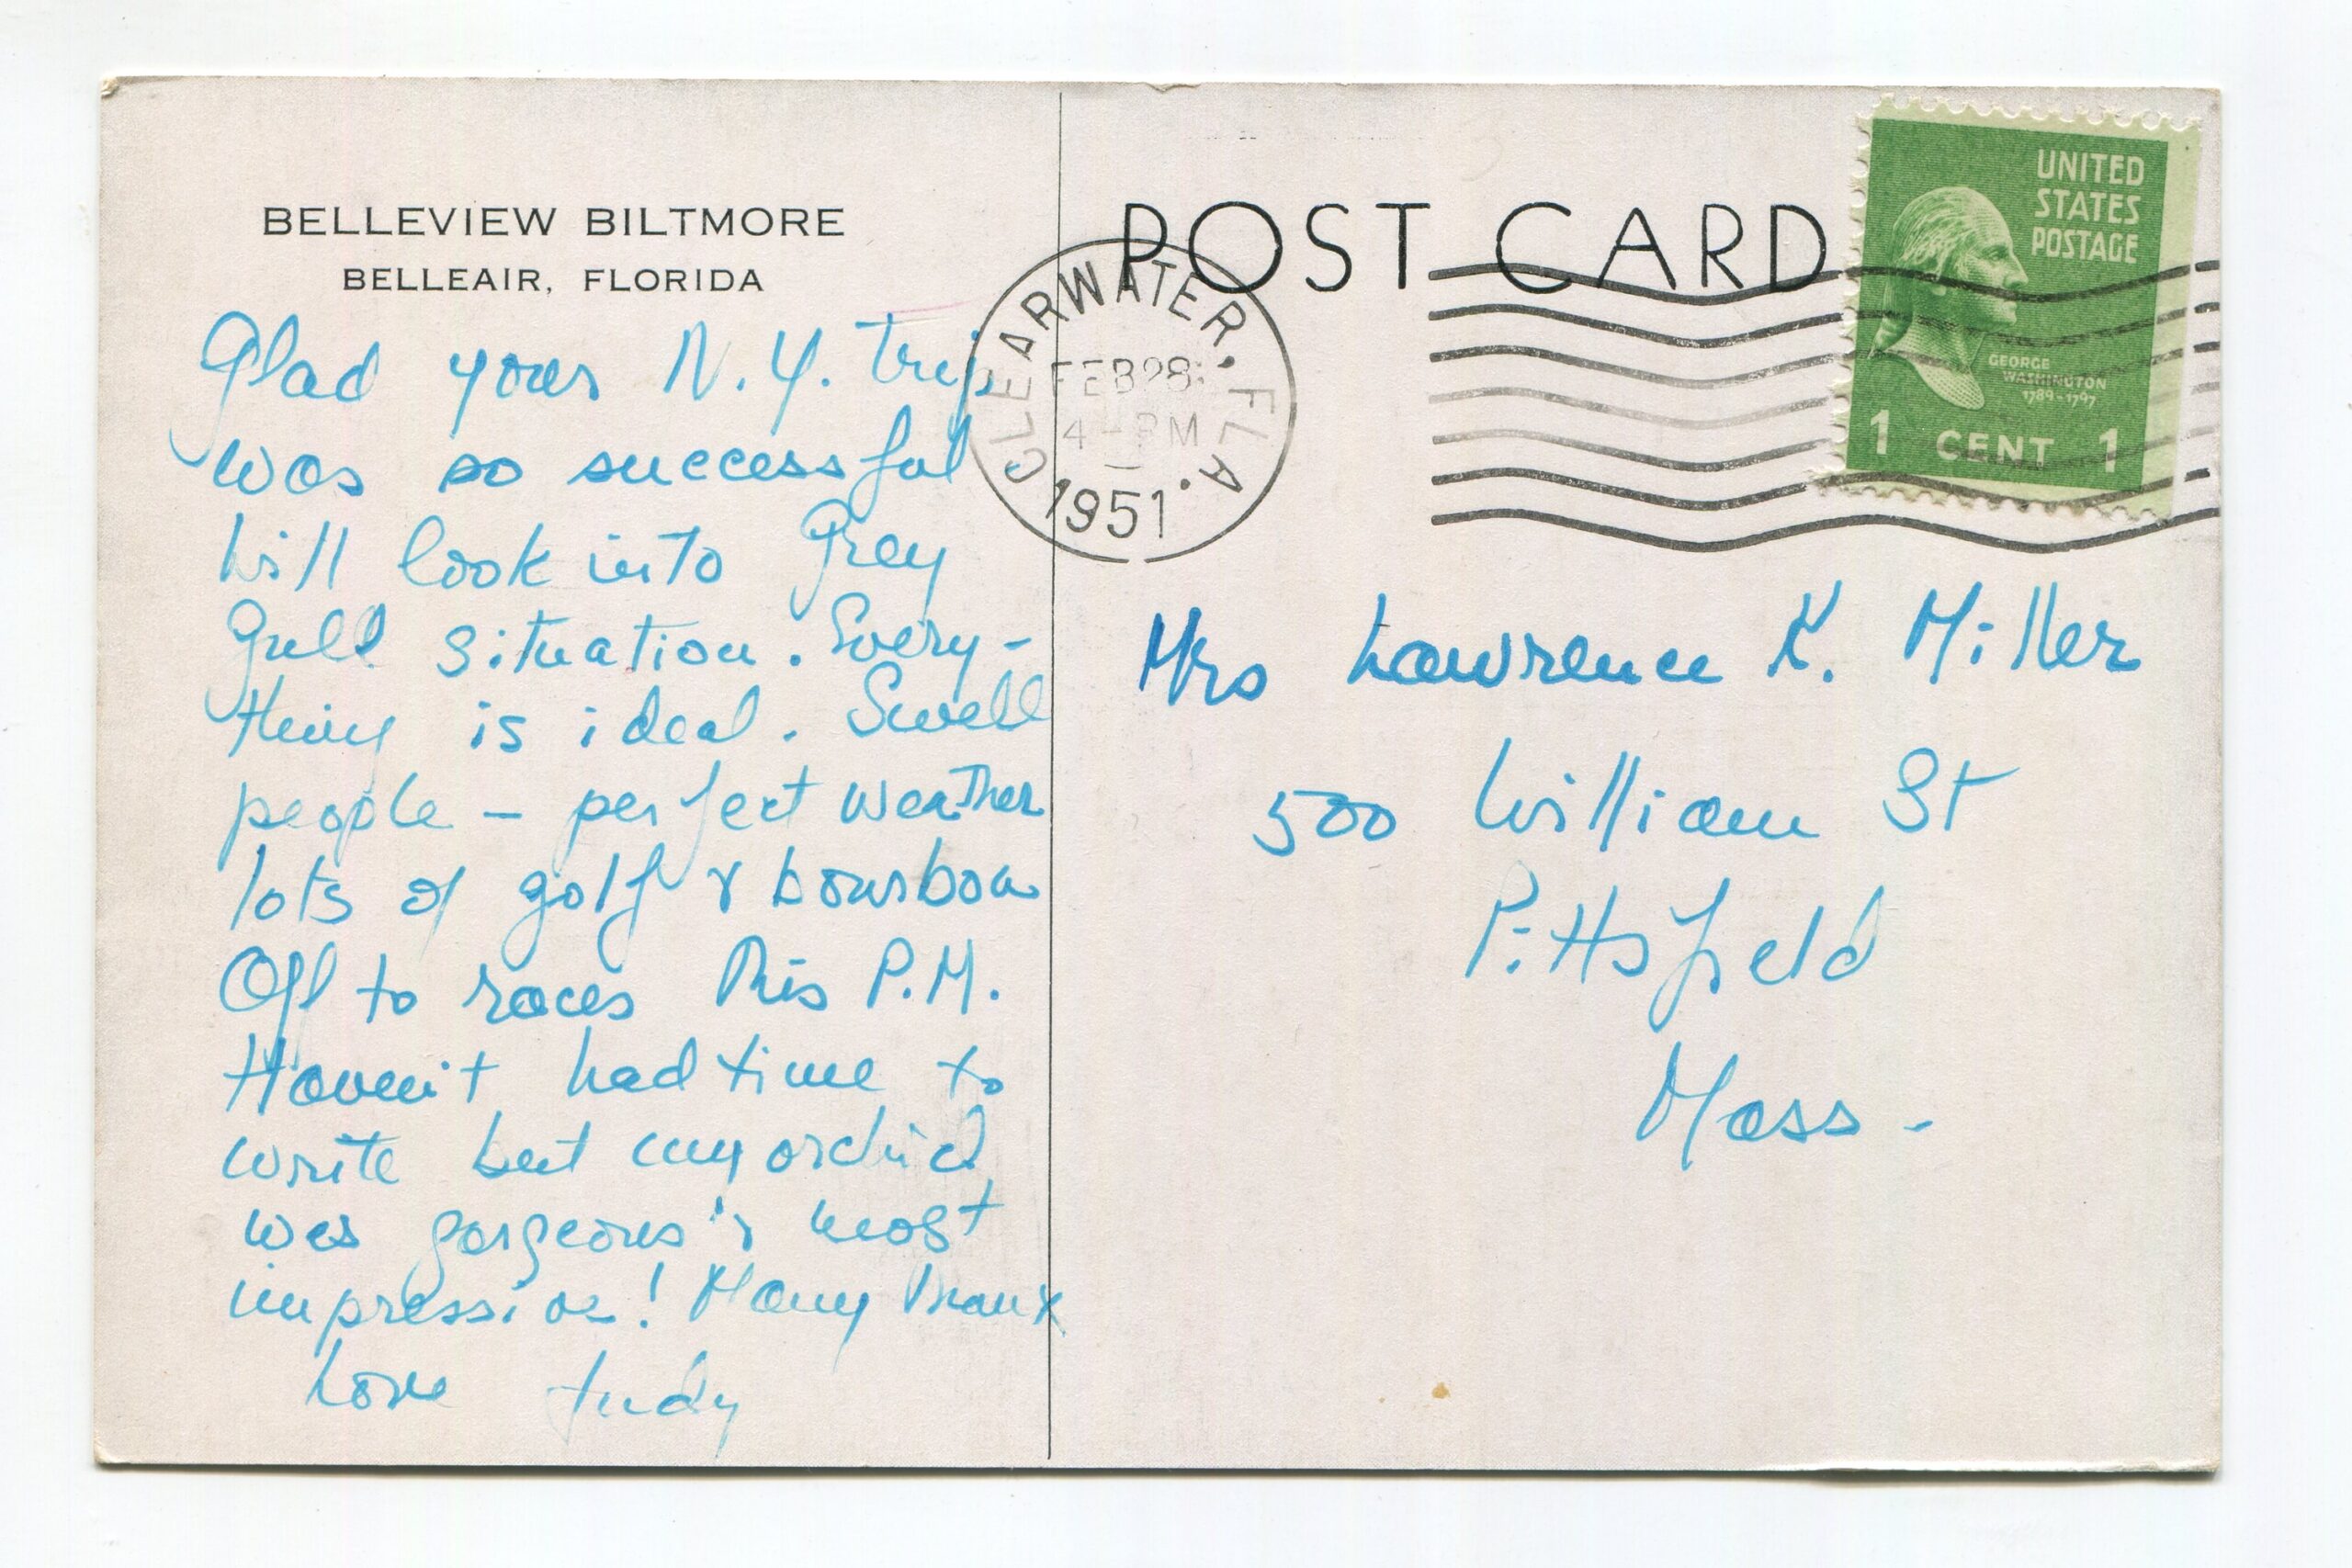 BELLEVIEW BILTMORE
BELLEAIR, FLORIDA
Glad your N.Y. trip
was so successful
Will look into Grey
Gull situation. Every-
thing is ideal. Swell
people - perfect weather
lots of golf & bourbon
Off to races this P.M.
Haven't had time to
write but my orchid
was gorgeous & most
impressive! Many thanx
Love Judy
POST CARD
CLEARWATER, FLA.
FEB 28
4 - PM
1951
UNITED
STATES
POSTAGE
GEORGE
WASHINGTON
1789-1797
1 CENT 1
Mrs Lawrence K. Miller
500 William St
Pittsfield
Mass -